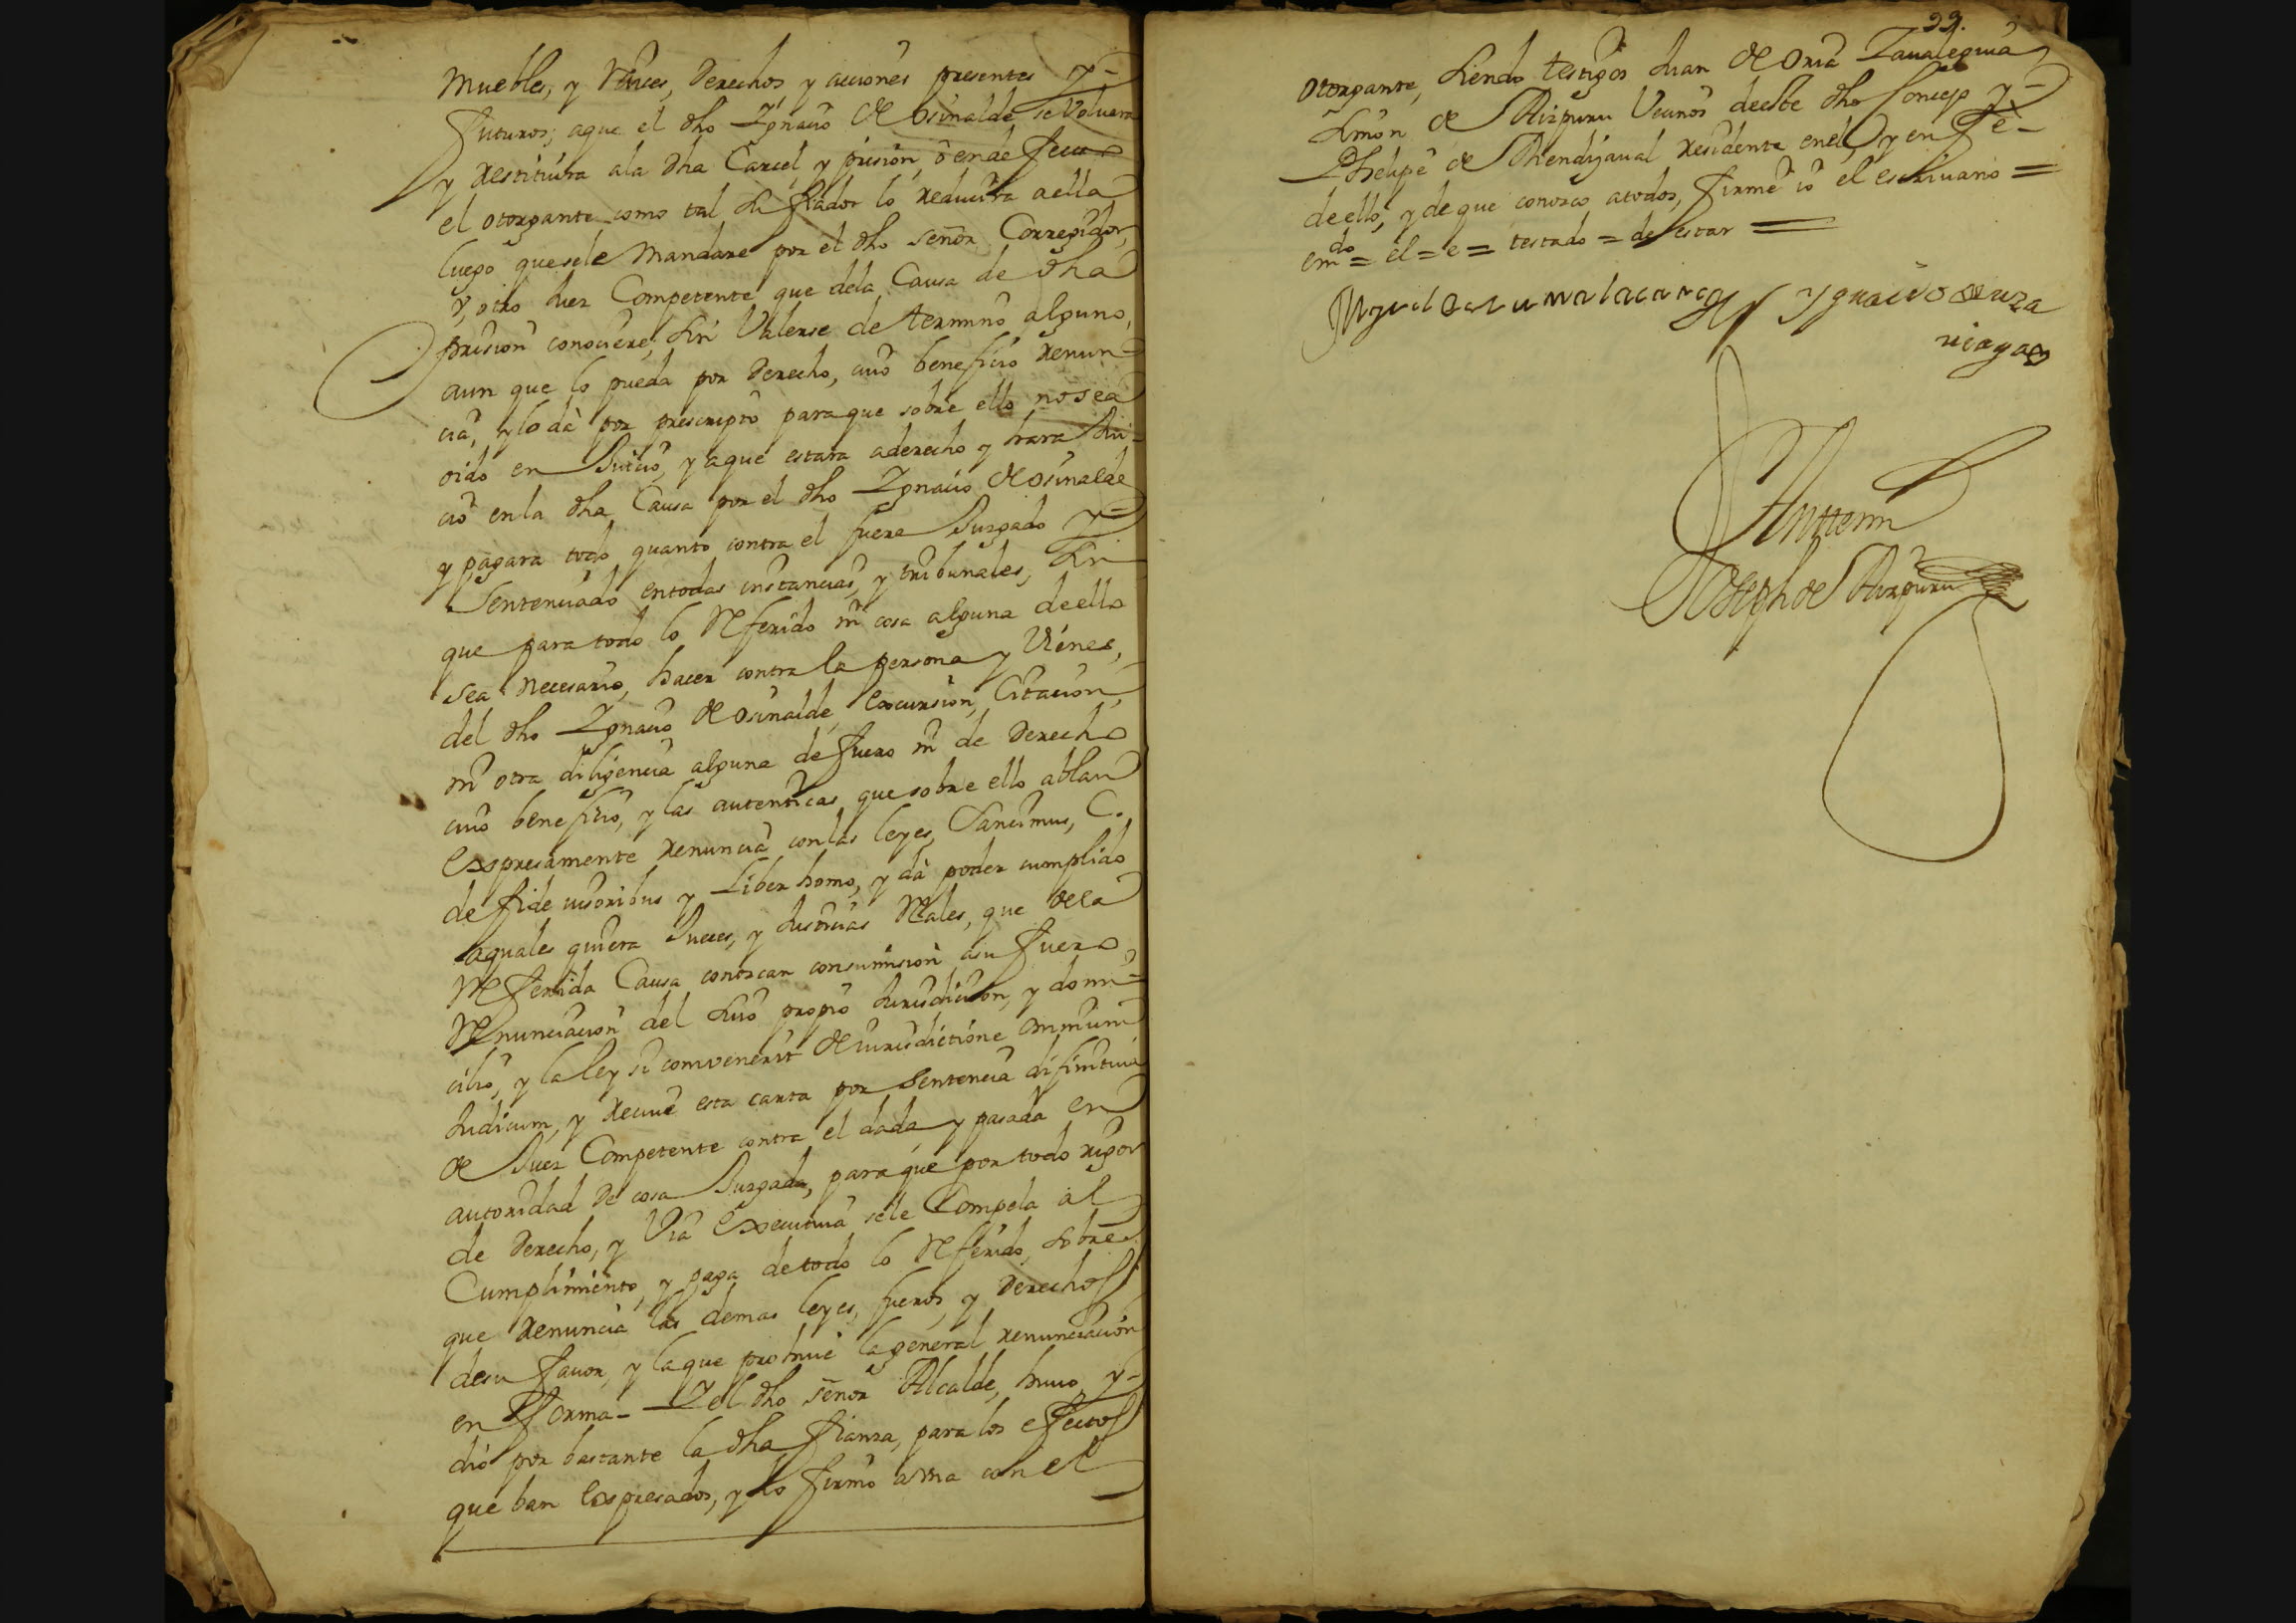 Muebles, y raices, derechos, y acciones presentes y-
futuros; aque el dho Ygnacio de osinalde se voluera
y restituira ala dha Carcel, y prision, o ende fecto
el otorgante como tal su fiador lo reducira aella
luego quesele Mandare por el dho señor Corregidor,
v, otro Juez Competente que dela Causa de dha
prision conociere, sin Valerse de termino alguno,
aun que lo pueda por derecho, cuio beneficio renun-
cia, y lo dà por prescripto paraque sobre ello no sea
oido en Juicio, y aque estara aderecho y hara Jui-
cio en la dha Causa por el dho Ygnacio de osinalde
y pagara todo quanto contra el fuere Juzgado y-
Sentenciado entodas instancias, y tribunales, sin
que para todo lo Referido ni cosa alguna de ello
sea necesario, hacer contra la persona y Vienes,
del dho Ygnacio de osinalde, excursion, Citacion,
ni otra diligencia alguna de fuero ni de derecho
cuio beneficio, y las autenticas que sobre ello ablan
Expresamente renuncia con las leyes, Sancimus, C.
de fide iusoribus y Liber homo, y dà poder cumplido
aquales quiera Jueces, y Justicias Reales, que de la
Referida Causa conozcan consumision asu fuero,
Renunciacion del suio propio Jurisdicion, y domi-
cilio, y la ley si convenerit de iurisdictione omnium
Judicum, y reciue esta carta por Sentencia difinitiua
de Juez Competente contra el dada, y pasada en
autoridad de cosa Juzgada, para que por todo rigor
de derecho, y Via Executiua sele Compela al
Cumplimiento, y paga de todo lo Referido, sobre
que renuncia las demas leyes, fueros, y derechos
desu fauor, y laque prohiue la general renunciacion
en Forma- Y el dho señor Alcalde, huuo, y-
dio por bastante la dha fianza, para los efectos
que ban Expresados, y lo firmo avna con el
99.
otorgante, siendo testigos Juan de Oria Zaualegui
Simon de Aizpuru Vecinos de este dho Concejo y-
Phelipe de Mendizaual residente en el, y en fe-
de ello, y de que conozco atodos, firme io el escriuano =
em do = el = e = testado = de estar =
Ygnacio de uza
Anttemi
Joseph de Aizpuru